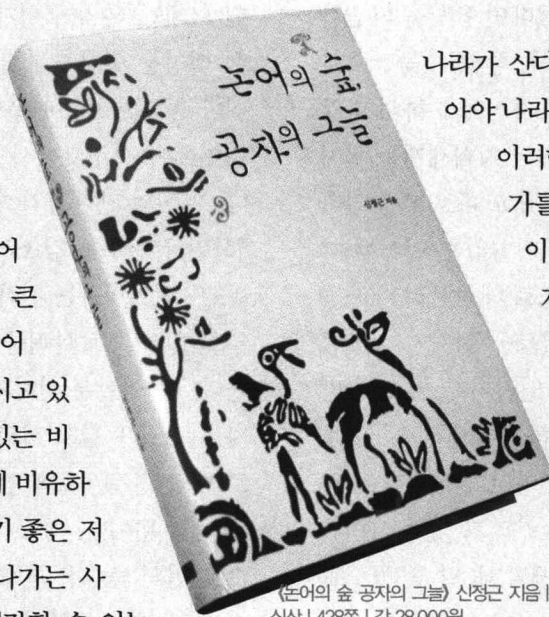 논어의 숲
공자의 그늘
신정근 지음
나라가 산다
아야 나라
이러한
가를
이
어
큰
어
시고 있
있는 비
에 비유하
기 좋은 저
나가는 사
《논어의 숲 공자의 그늘》 신정근 지음 |
심산 | 428쪽 | 값 28,000원